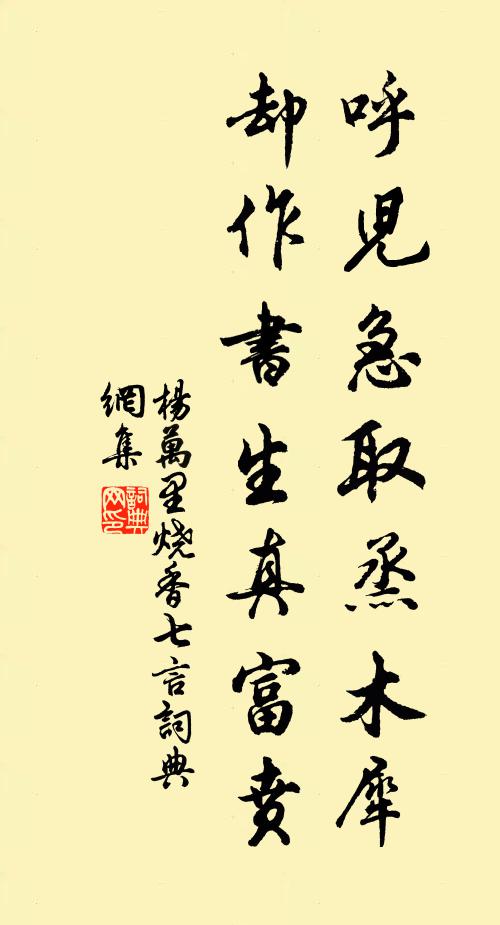 呼兒急取烝木犀
却作書生真富貴
楊萬里燒香七言詞典
網集
詞典
网印